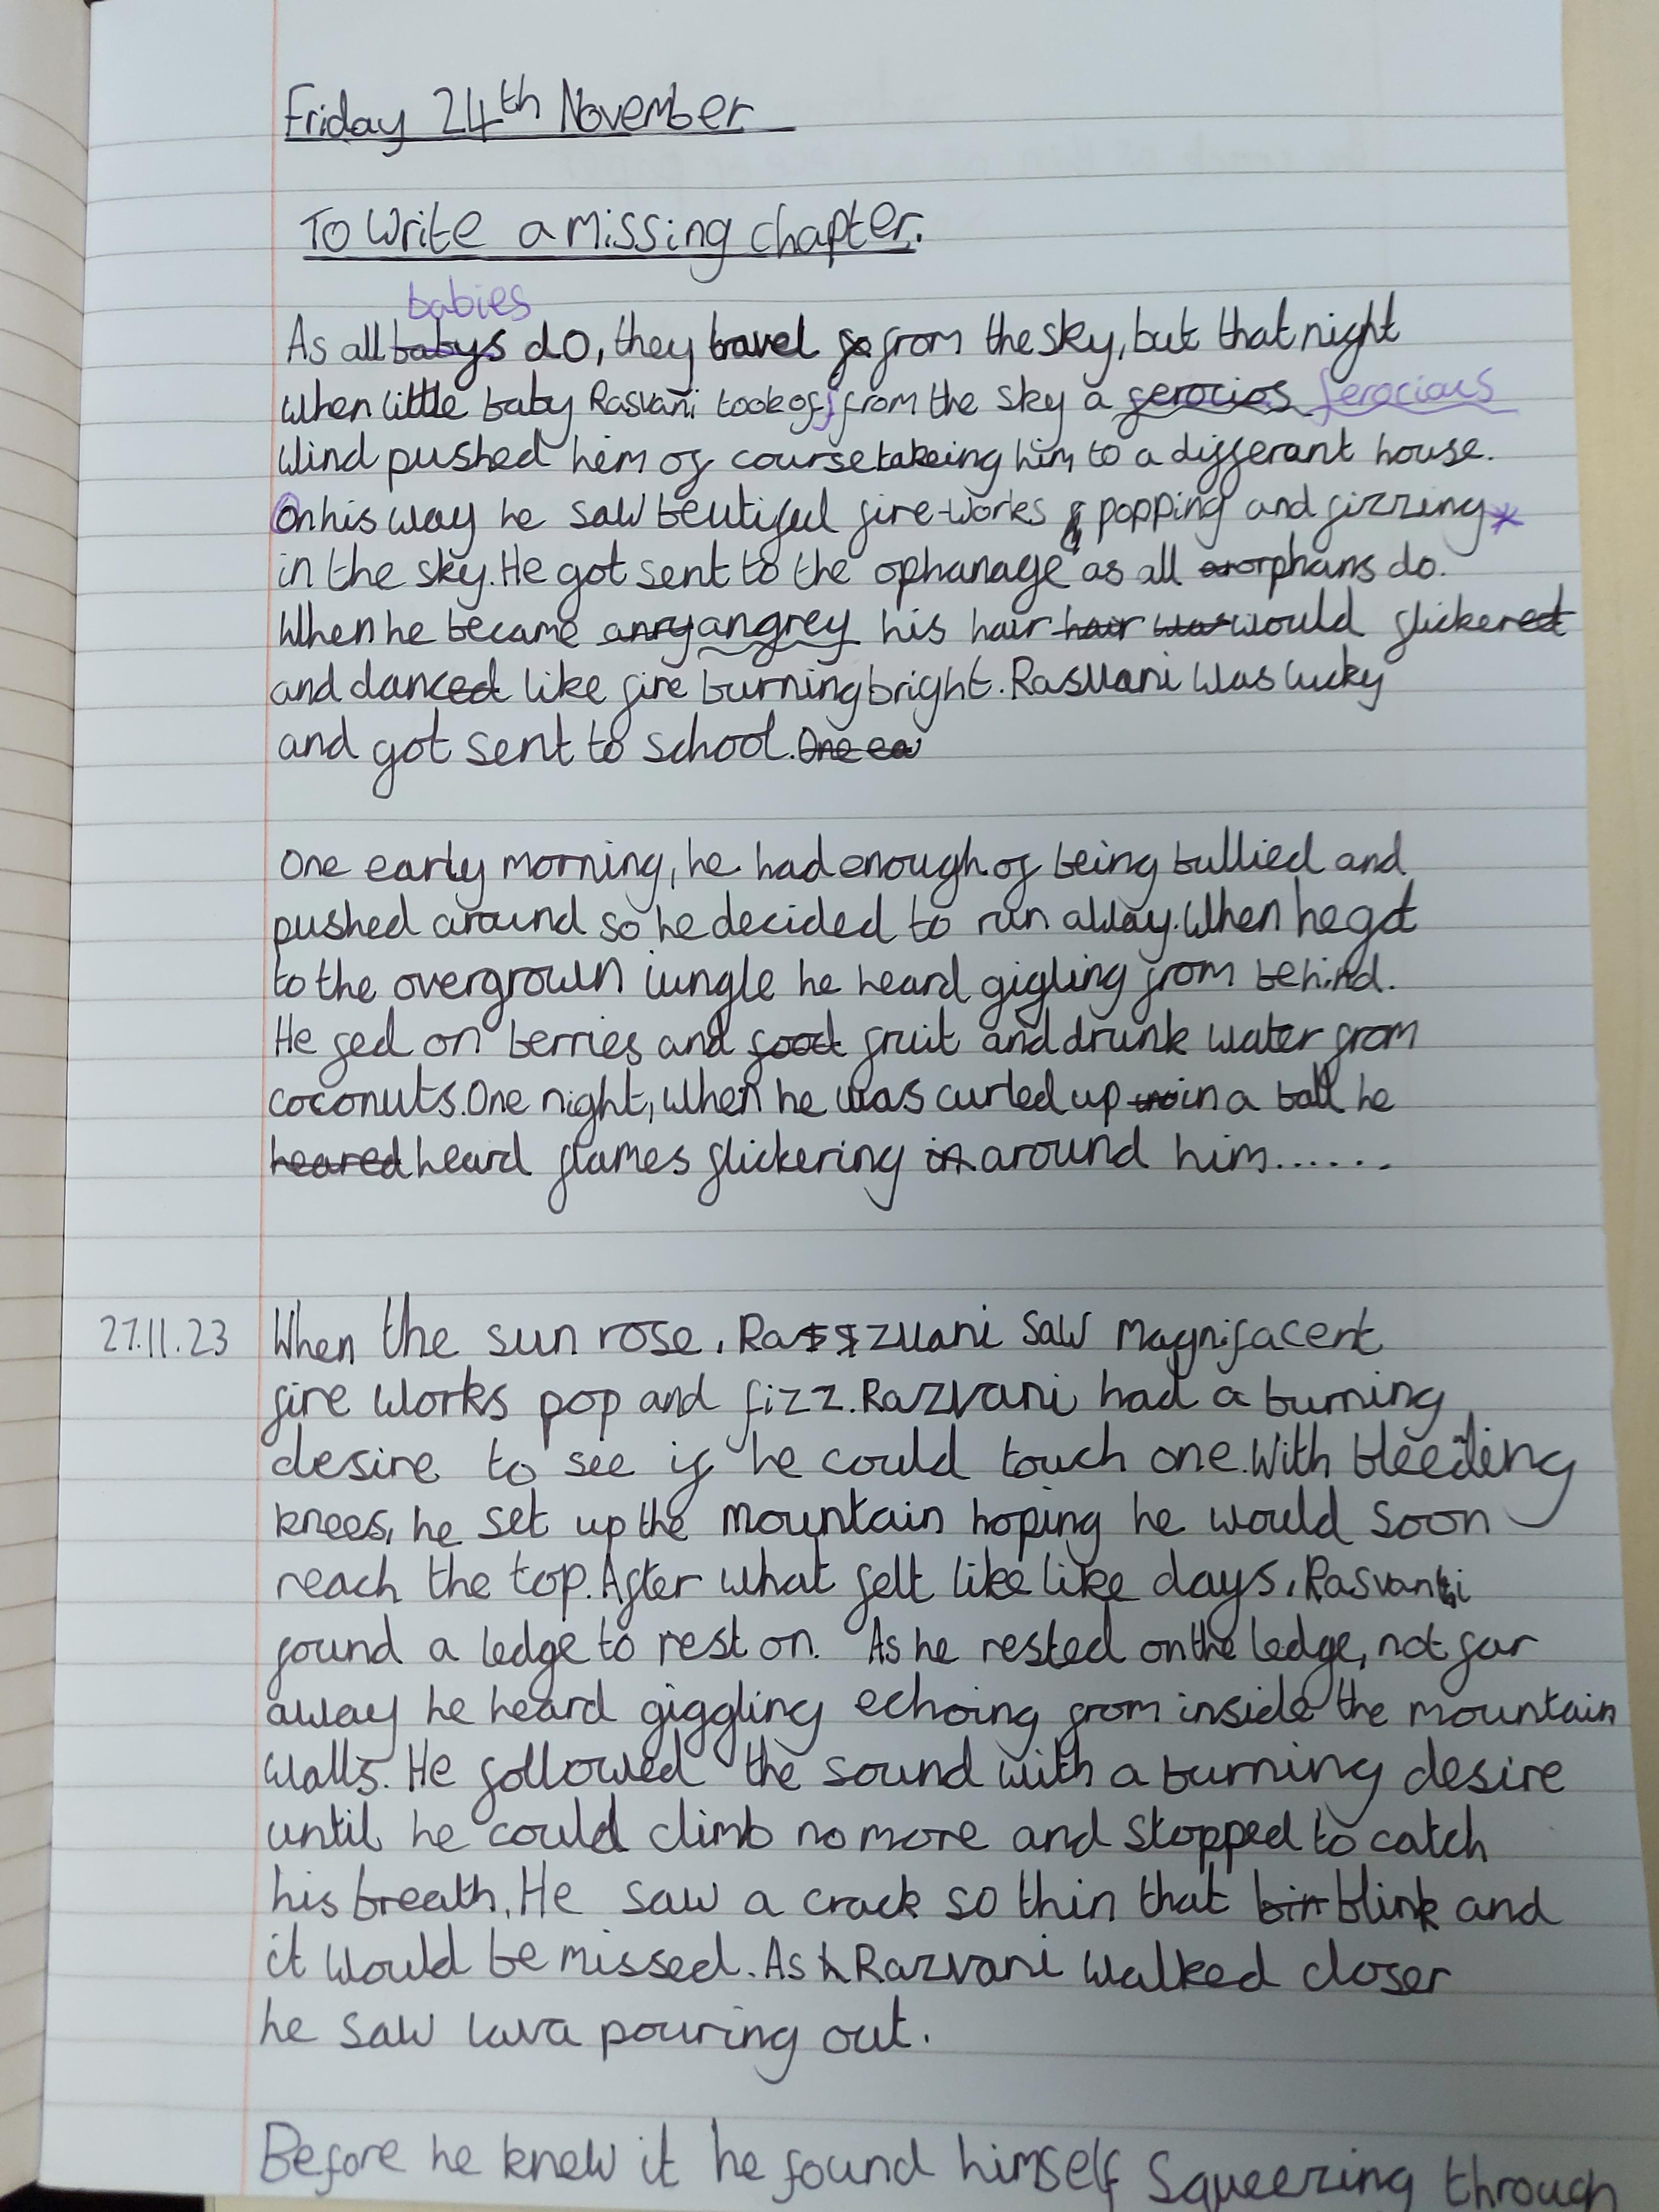 Friday 24th November
To Write a missing chapter.
babies
As all babys do, they travel from the sky, but that night
when little baby Rasvani took off from the sky a ferocios ferocious
wind pushed him of course takeing him to a differant house.
On his way he saw beutiful fire-works popping and fizzing*
in the sky. He got sent to the ophanage as all orphans do.
When he became anry angrey his hair hair was would flickered
and danced like fire burning bright. Rasvani was lucky
and got sent to school. One ea
One early morning, he had enough of being bullied and
pushed around so he decided to run away. When he got
to the overgrown jungle he heard gigling from behind.
He fed on berries and food fruit and drunk water from
coconuts. One night, when he was curled up in a ball he
heared heard flames flickering in around him......
27.11.23 When the sun rose, Razvani saw magnifacent
fire works pop and fizz. Razvani had a burning
desire to see if he could touch one. With bleeding
knees, he set up the mountain hoping he would soon
reach the top. After what felt like like days, Rasvani
found a ledge to rest on. As he rested on the ledge, not far
away he heard giggling echoing from inside the mountain
walls. He followed the sound with a burning desire
until he could climb no more and stopped to catch
his breath. He saw a crack so thin that blink and
it would be missed. As Razvani walked closer
he saw lava pouring out.
Before he knew it he found himself squeezing through